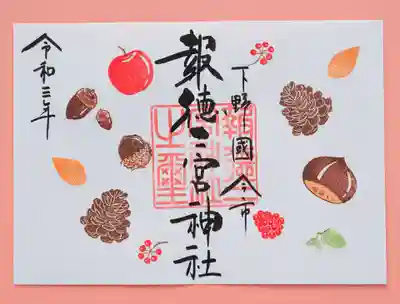 下野國今市
報徳二宮神社
令和三年